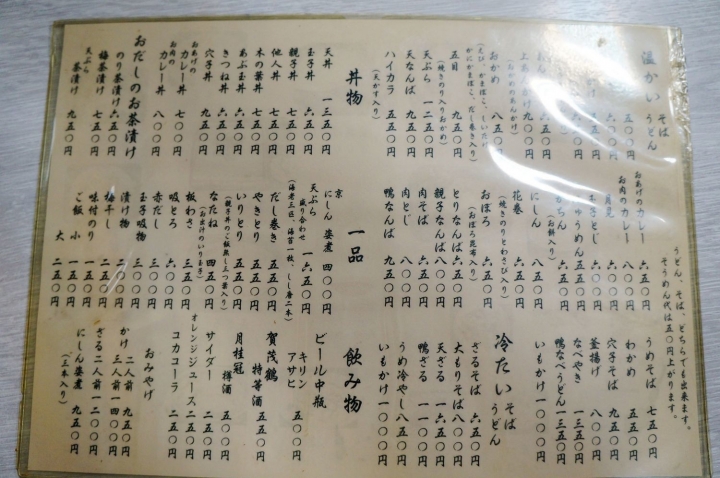 温かい そば
うどん
五〇〇円
上あんかけ
おかめ 八五〇円
(えび、かまぼこ、しいたけ
かにかまぼこ、だし巻き入り)
五目 九五〇円
(焼きのり入りおかめ)
天ぷら 一二五〇円
天なんば 九五〇円
ハイカラ 五五〇円
(天かす入り)
丼物
天丼 一三五〇円
玉子丼 六五〇円
親子丼 七五〇円
他人丼 八五〇円
木の葉丼 七五〇円
あぶ玉丼 七五〇円
きつね丼 六五〇円
穴子丼 九五〇円
おあげの
カレー丼 七〇〇円
お肉の
カレー丼 八〇〇円
おだしのお茶漬け
のり茶漬け 六五〇円
梅茶漬け 七五〇円
天ぷら
茶漬け 九五〇円
うどん、そば、どちらでも出来ます。
そうめん代は五〇円上がります。
おあげのカレー 六五〇円
お肉のカレー 八〇〇円
月見 六〇〇円
玉子とじ 六〇〇円
(お餅入り)
にしん 八五〇円
花巻 六五〇円
(焼きのりとわさび入り)
おぼろ 六五〇円
(おぼろ昆布入り)
とりなんば 六五〇円
親子なんば 八〇〇円
肉そば 八〇〇円
肉とじ 九〇〇円
鴨なんば 九五〇円
一品
京
にしん 姿煮 四〇〇円
天ぷら
盛り合わせ 一六五〇円
(海老三匹、海苔一枚、しし唐二本)
だし巻き 五五〇円
やきとり 五五〇円
いりとり 五五〇円
(親子丼のご飯無し三つ葉入り)
なたね 四五〇円
(お出汁のいり玉子)
板わさ 三五〇円
吸とろ 三五〇円
赤だし 三〇〇円
玉子吸物 三〇〇円
漬け物 二五〇円
梅干し 二〇〇円
味付のり 一五〇円
ご飯 小 二〇〇円
大 二五〇円
うめそば 七五〇円
わかめ 五五〇円
穴子そば 九五〇円
釜揚げ 八〇〇円
なべやき 一三五〇円
鴨なべうどん 一三五〇円
いもかけ 一〇〇〇円
冷たい そば
うどん
ざるそば 六五〇円
大もりそば 八〇〇円
天ざる 一六五〇円
鴨ざる 一一〇〇円
うめ冷やし 八五〇円
いもかけ 一〇〇〇円
飲み物
ビール中瓶
キリン
アサヒ 五〇〇円
賀茂鶴
特等酒 五五〇円
月桂冠
樽酒 五〇〇円
サイダー 二五〇円
オレンジジュース 二五〇円
コカコーラ 二五〇円
おみやげ
かけ 二人前 九五〇円
三人前 一四〇〇円
ざる 二人前 一二〇〇円
にしん姿煮 九五〇円
(三本入り)